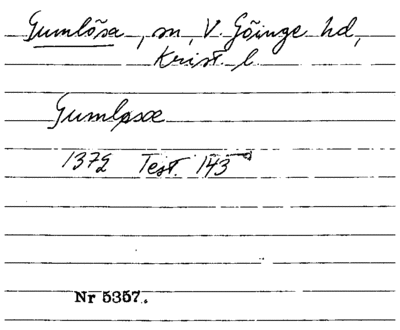 Gumlõsa, sn, V. Gõinge hd,
Krist. l
Gumløsæ
1372 Test. 143
Nr 5357.